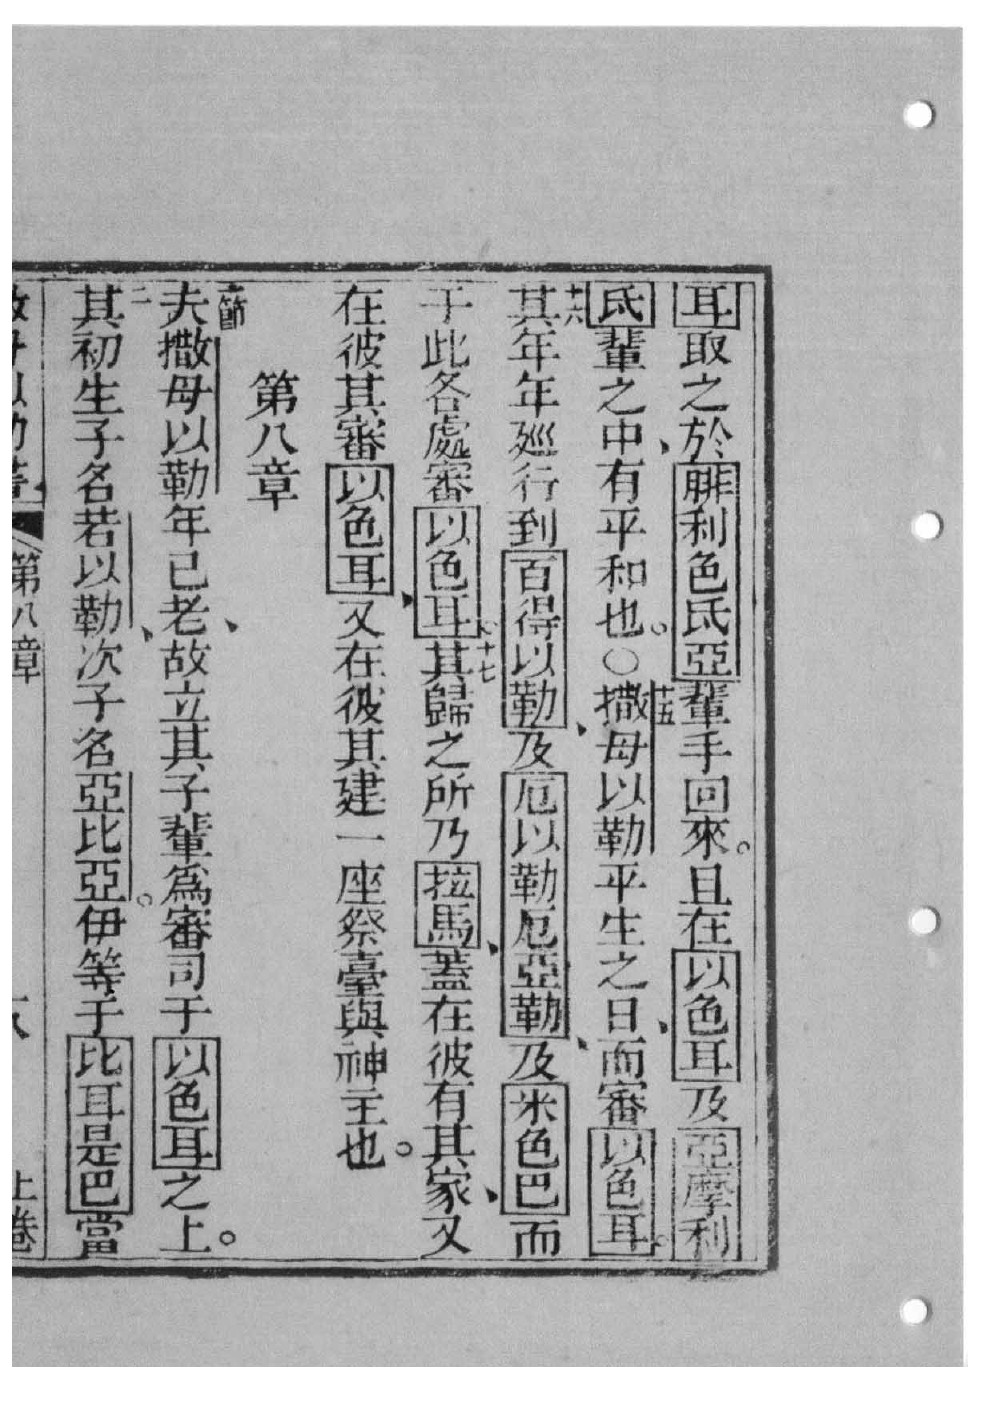 耳取之於腓利色氐亞輩手回來。且在以色耳及亞摩利
氐輩之中、有平和也。○十五撒母以勒平生之日、而審以色耳。
十六其年年廵行到百得以勒、及厄以勒厄亞勒、及米色巴而
于此各處審以色耳。十七其歸之所乃拉馬、蓋在彼有其家、又
在彼其審以色耳、又在彼其建一座祭臺與神主也。
第八章
一節夫撒母以勒年已老、故立其子輩爲審司于以色耳之上。
二其初生子名若以勒、次子名亞比亞。伊等于比耳是巴當
母以勒 第八章 上卷